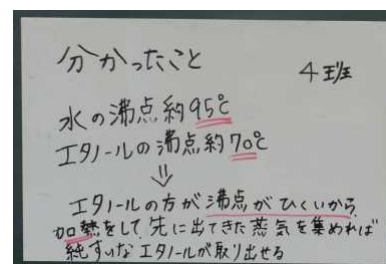 分かったこと
4班
水の沸点約95℃
エタノールの沸点約70℃
⇓
エタノールの方が沸点がひくいから
加熱をして先に出てきた蒸気を集めれば
純すいなエタノールが取り出せる